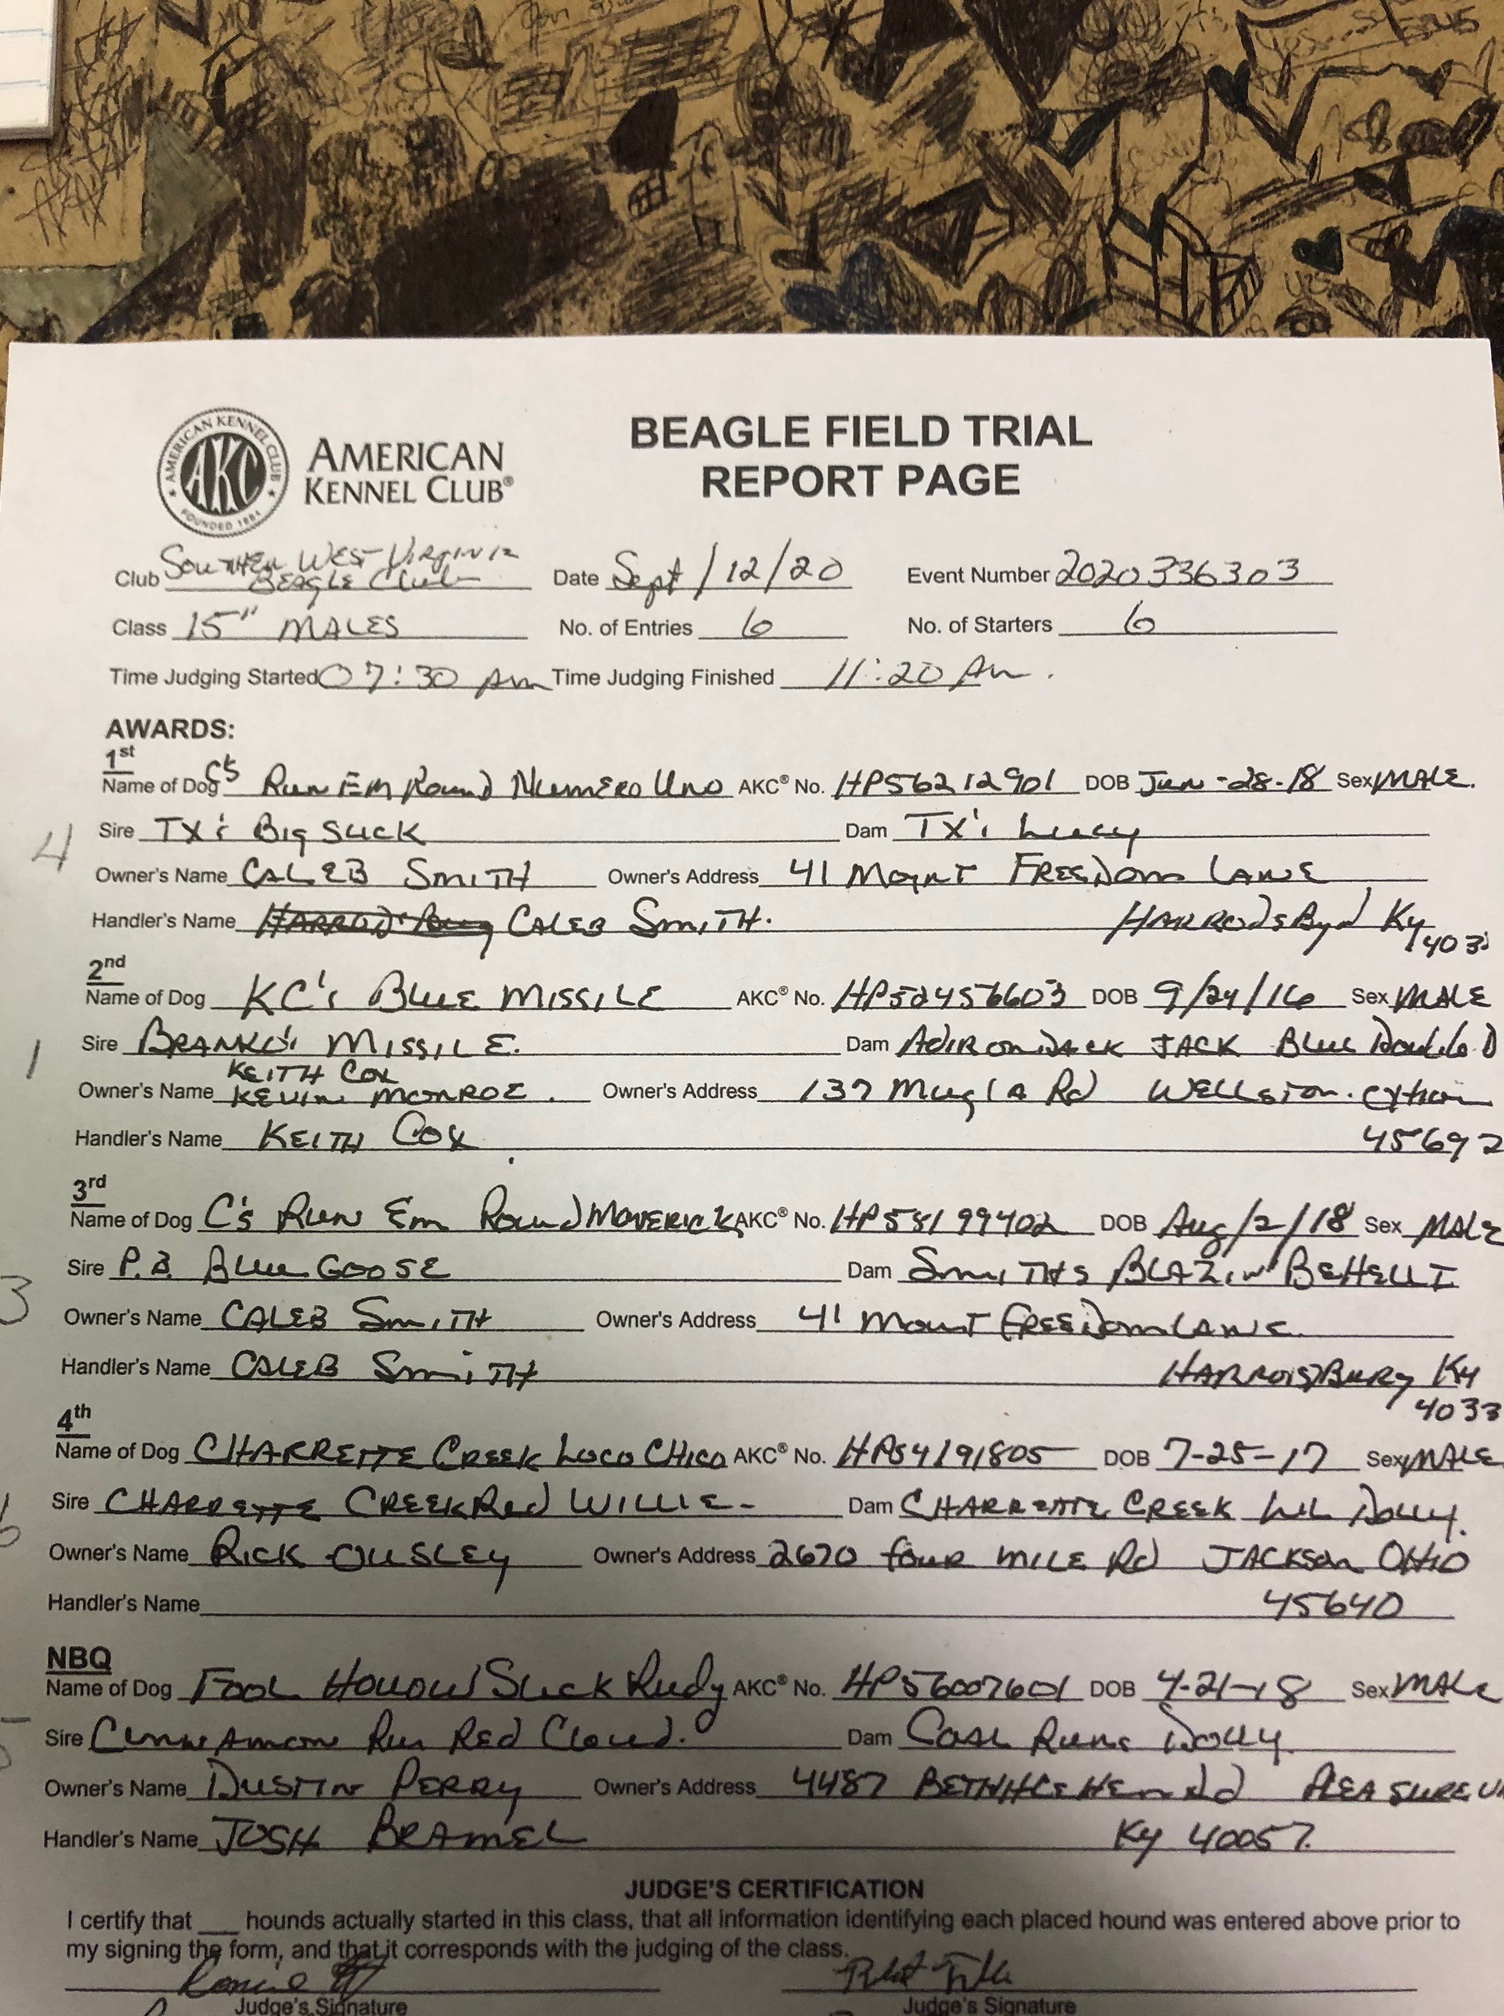 AMERICAN KENNEL CLUB
AKC
FOUNDED 1884
AMERICAN
KENNEL CLUB®
BEAGLE FIELD TRIAL
REPORT PAGE
Club Southern West Virginia
Beagle Club
Date Sept/12/20 Event Number 2020336303
Class 15" MALES No. of Entries 6 No. of Starters 6
Time Judging Started 07:30 Am Time Judging Finished 11:20 Am.
AWARDS:
1st
Name of Dog C's Run Em Round Numero Uno AKC® No. HP56212901 DOB Jun-28-18 Sex MALE
4
Sire TX's Big Slick Dam TX's Lucy
Owner's Name CALEB SMITH Owner's Address 41 Mount FREEDOM LANE
Handler's Name CALEB SMITH. Ky
2nd
Name of Dog KC's BLUE MISSILE AKC® No. HP52456603 DOB 9/24/16 Sex MALE
1
Sire MISSILE. Dam ADIRONDACK JACK Blue Double D
KEITH COX
Owner's Name KEVIN MONROE. Owner's Address 137 Rd WELLSTON.
Handler's Name KEITH COX 45692
3rd
Name of Dog C's Run Em Round MAVERICK AKC® No. HP58199402 DOB Aug/2/18 Sex MALE
Sire P.B. BLUE GOOSE Dam SMITHS BLAZIN'
3
Owner's Name CALEB SMITH Owner's Address 41 Mount FREEDOM LANE
Handler's Name CALEB SMITH Ky
4033
4th
Name of Dog CHARRETTE CREEK LOCO CHICO AKC® No. HP54191805 DOB 7-25-17 Sex MALE
Sire CHARRETTE CREEK Red WILLIE Dam CHARRETTE CREEK LiL DOLLY.
6
Owner's Name RICK OUSLEY Owner's Address 2670 four MILE Rd JACKSON OHIO
Handler's Name 45640
NBQ
Name of Dog FOOL HOLLOW Slick Rudy AKC® No. HP56007601 DOB 4-21-18 Sex MALE
Sire Run Red Cloud. Dam Runs Dolly
5
Owner's Name DUSTIN PERRY Owner's Address 4487 PLEASUREV
Handler's Name JOSH BRAMEL Ky 40057.
JUDGE'S CERTIFICATION
I certify that ___ hounds actually started in this class, that all information identifying each placed hound was entered above prior to
my signing the form, and that it corresponds with the judging of the class.
Judge's Signature Judge's Signature